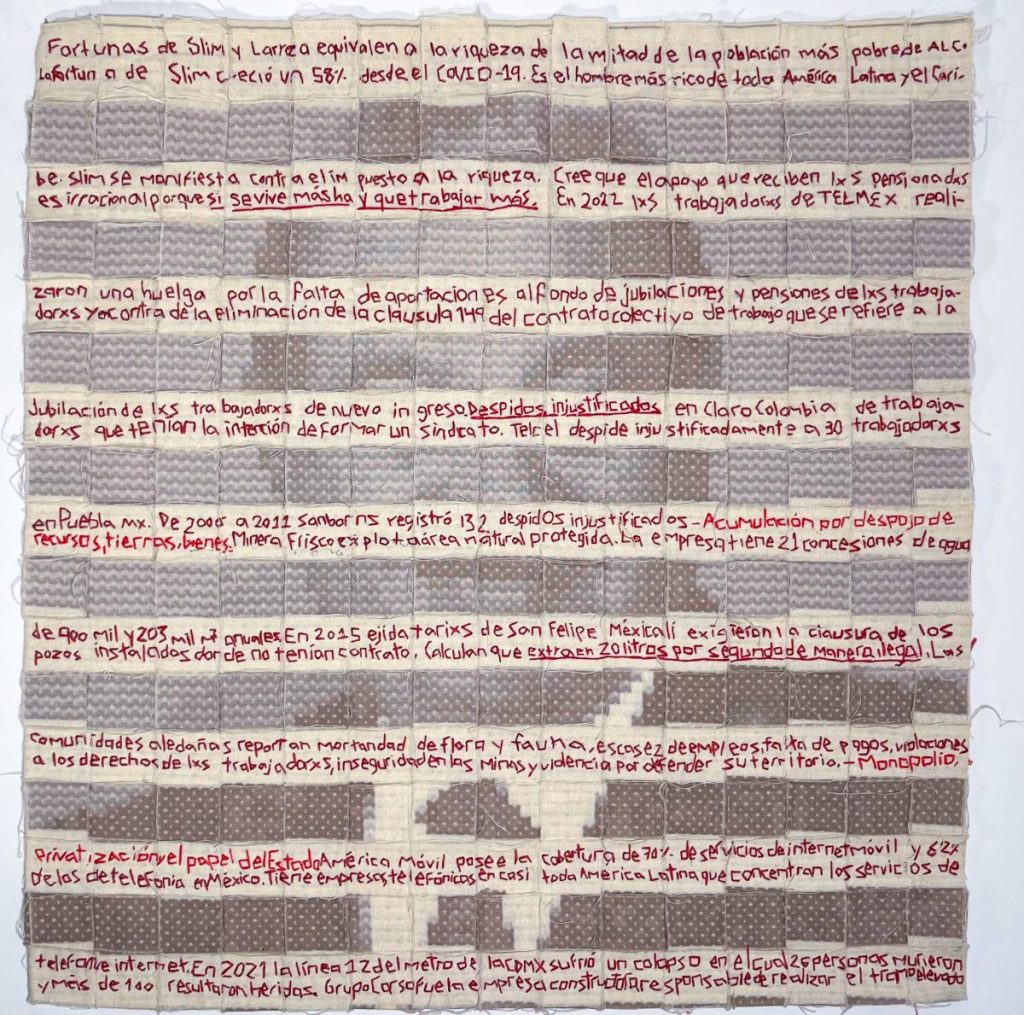 Fortunas de Slim y Larrea equivalen a la riqueza de la mitad de la población más pobre de ALC.
La fortuna de Slim creció un 58% desde el COVID-19. Es el hombre más rico de toda América Latina y el Cari-
be. Slim se manifiesta contra el impuesto a la riqueza. Cree que el apoyo que reciben lxs pensionadxs
es irracional porque si se vive más hay que trabajar más. En 2022 lxs trabajadorxs de TELMEX reali-
zaron una huelga por la falta de aportaciones al fondo de jubilaciones y pensiones de lxs trabaja-
dorxs y en contra de la eliminación de la cláusula 149 del contrato colectivo de trabajo que se refiere a la
Jubilación de lxs trabajadorxs de nuevo ingreso. Despidos injustificados en Claro Colombia de trabaja-
dorxs que tenían la intención de formar un sindicato. Telcel despide injustificadamente a 30 trabajadorxs
en Puebla MX. De 2000 a 2011 Sanborns registró 132 despidos injustificados - Acumulación por despojo de
recursos, tierras, bienes. Minera Frisco explota área natural protegida. La empresa tiene 21 concesiones de agua
de 900 mil y 203 mil anuales. En 2015 ejidatarixs de San Felipe Méxicali exigieron la clausura de los
pozos instalados donde no tenían contrato. Calculan que extraen 20 litros por segundo de manera ilegal. Las
comunidades aledañas reportan mortandad de flora y fauna, escasez de empleos, falta de pagos, violaciones
a los derechos de lxs trabajadorxs, inseguridad en las minas y violencia por defender su territorio. - Monopolio,
privatización y el papel del Estado América Móvil posee la cobertura de 70% de servicios de internet móvil y 62%
de los de telefonía en México. Tiene empresas telefónicas en casi toda América Latina que concentran los servicios de
telefonía e internet. En 2021 la línea 12 del metro de la CDMX sufrió un colapso en el cual 26 personas murieron
y más de 100 resultaron heridas. Grupo Carso fue la empresa constructora responsable de realizar el tramo elevado